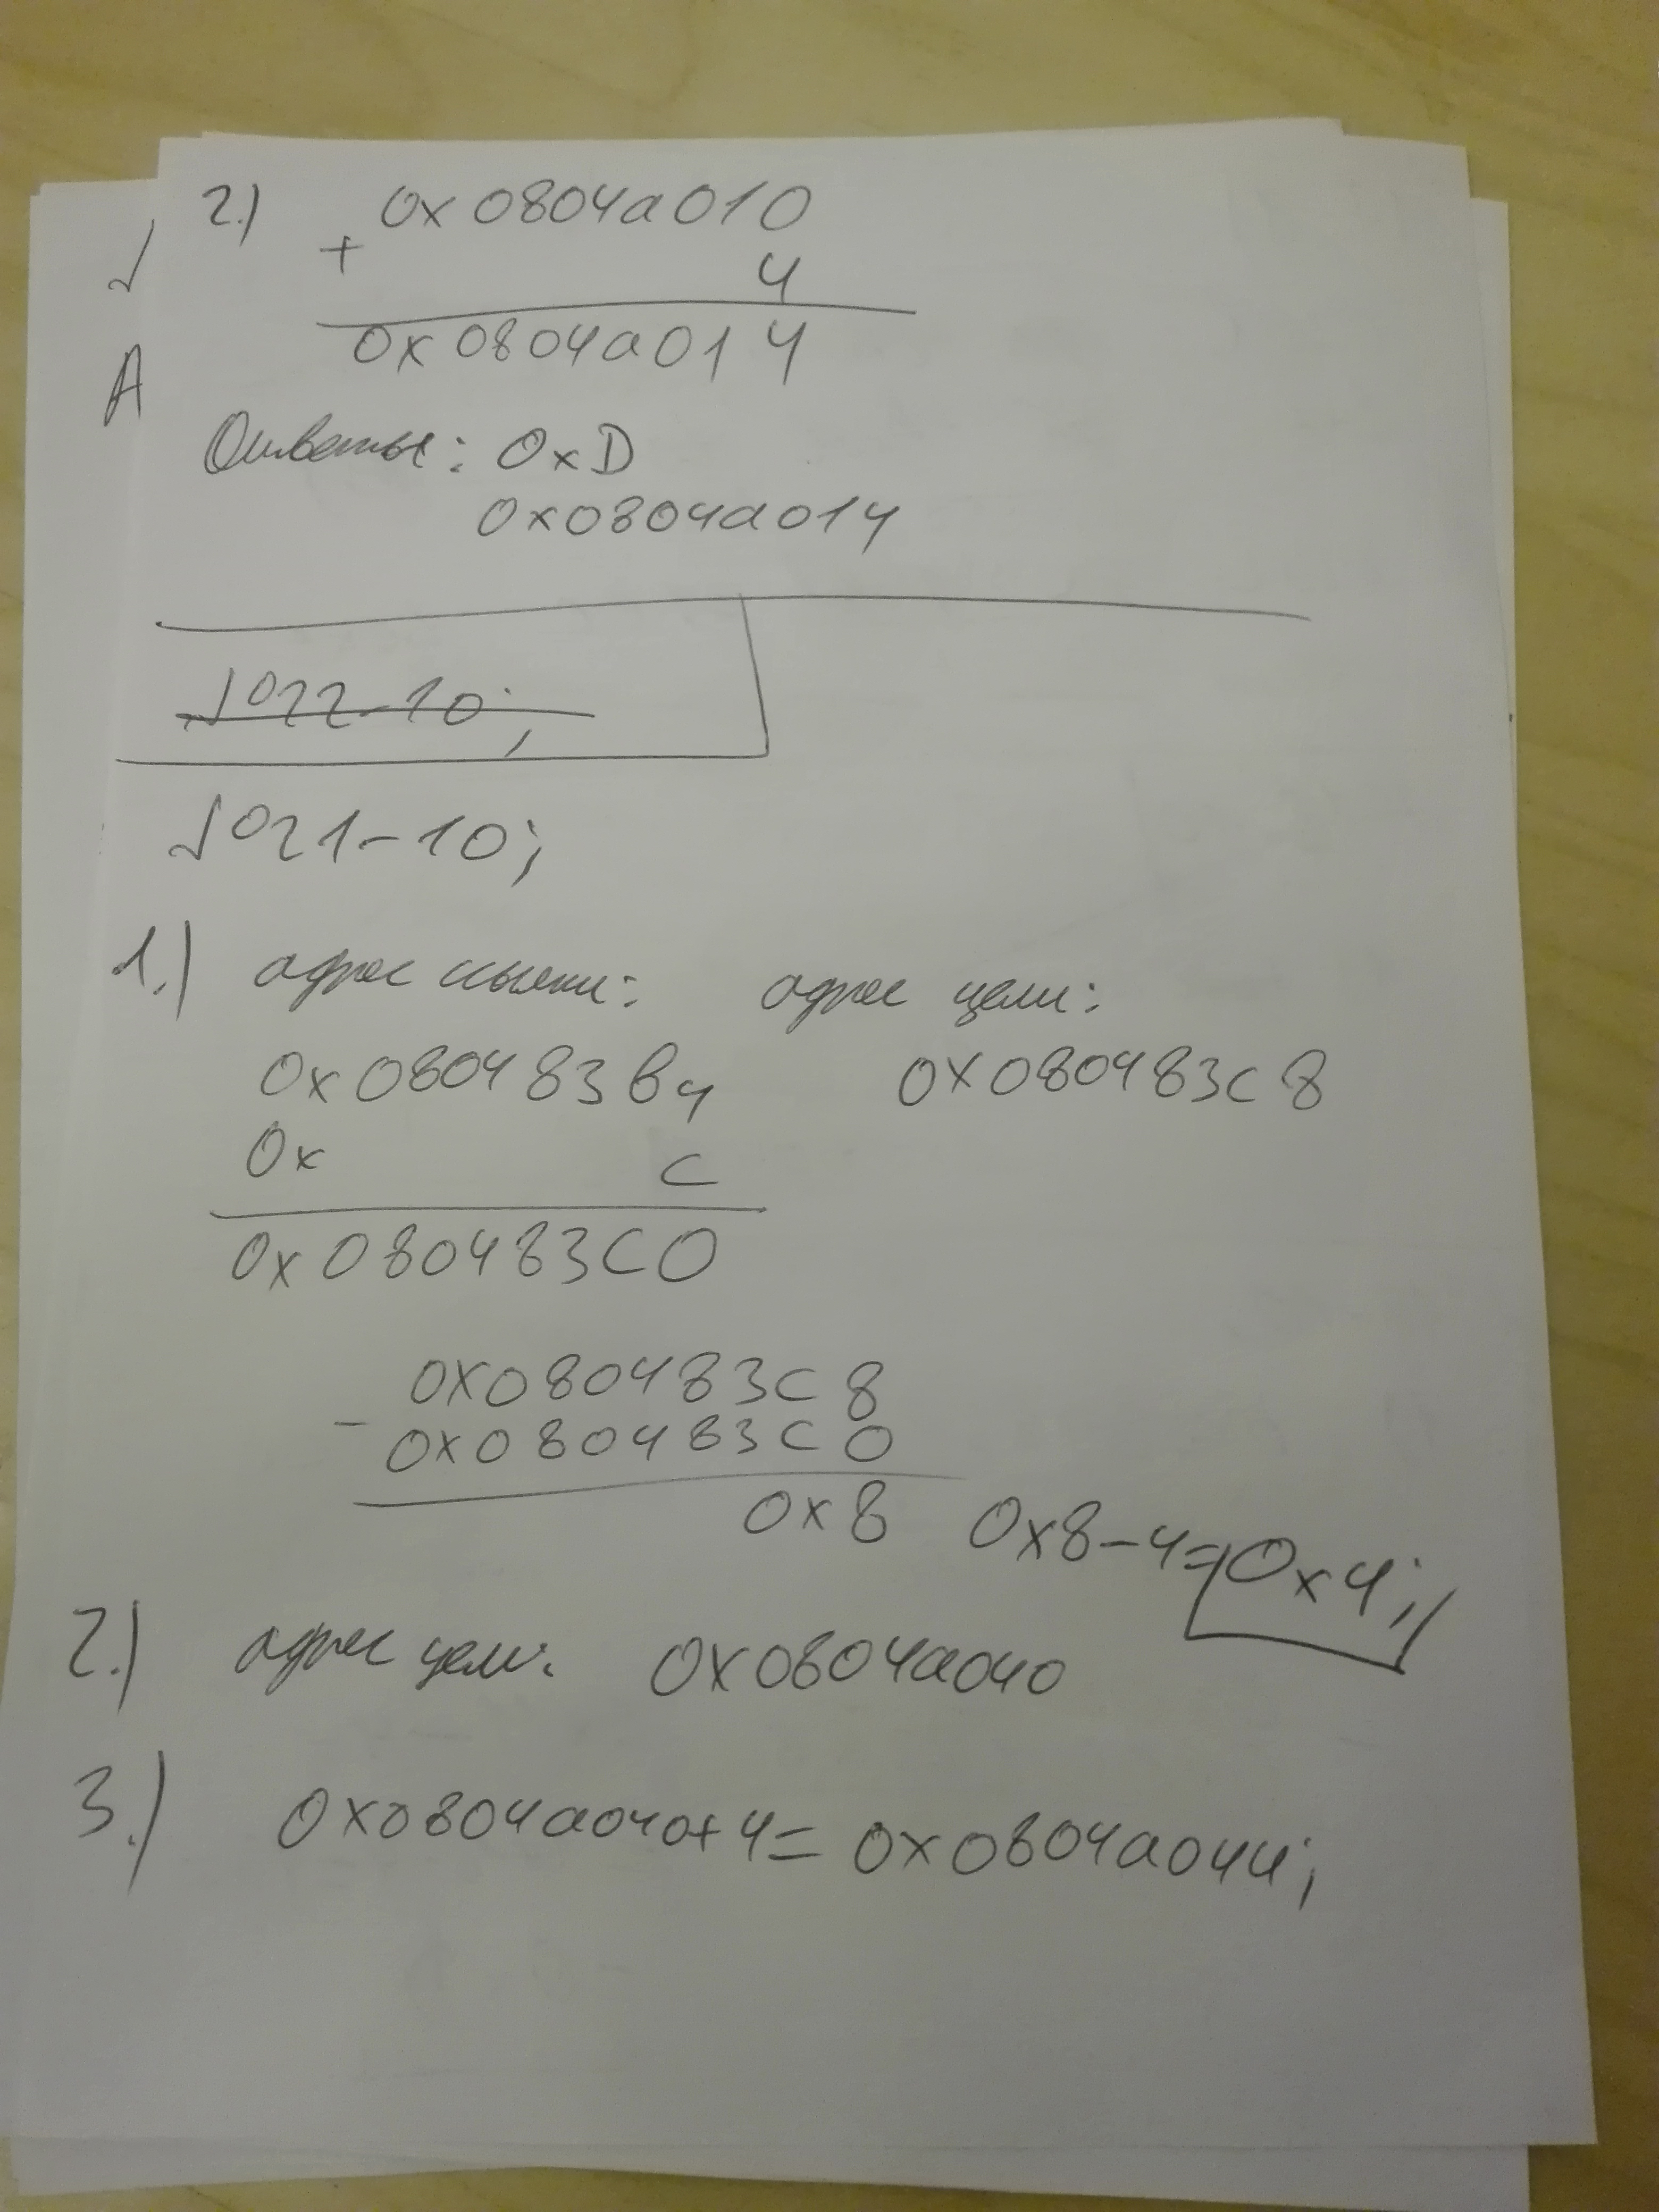 2.) 0x0804a010
+ 4
0x0804a014
A
Ответы: 0xD
0x0804a014
№22-10;
№21-10;
1.) адрес ссылки: адрес цели:
0x080483b4 0x080483c8
0x c
0x080483c0
0x080483c8
- 0x080483c0
0x8 0x8-4=0x4;
2.) адрес цели: 0x0804a040
3.) 0x0804a040+4= 0x0804a044;